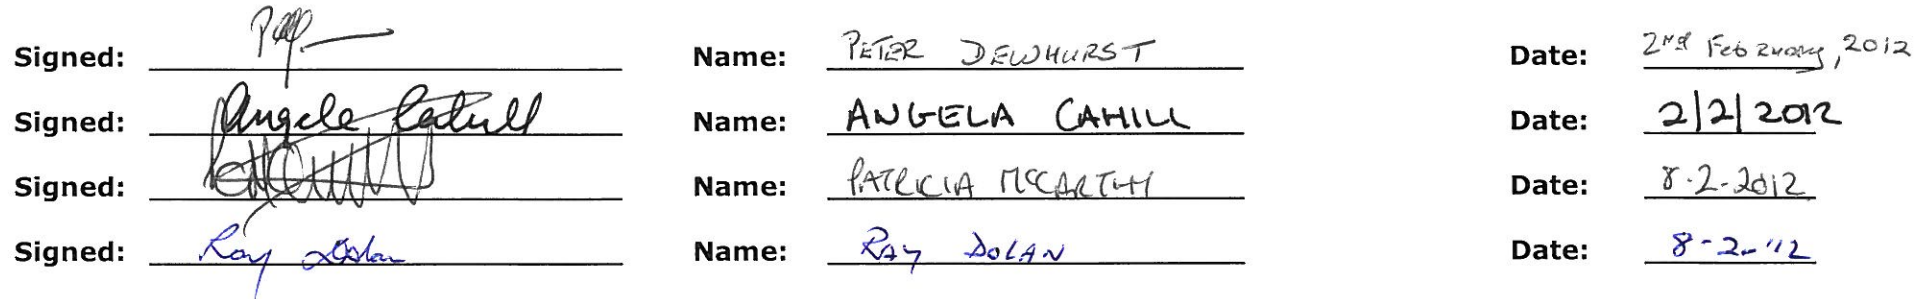 Signed: Name: PETER DEWHURST Date: 2nd February, 2012
Signed: Angela Cahill Name: ANGELA CAHILL Date: 2/2/2012
Signed: Name: PATRICIA MCCARTHY Date: 8.2.2012
Signed: Ray Dolan Name: RAY DOLAN Date: 8-2-'12